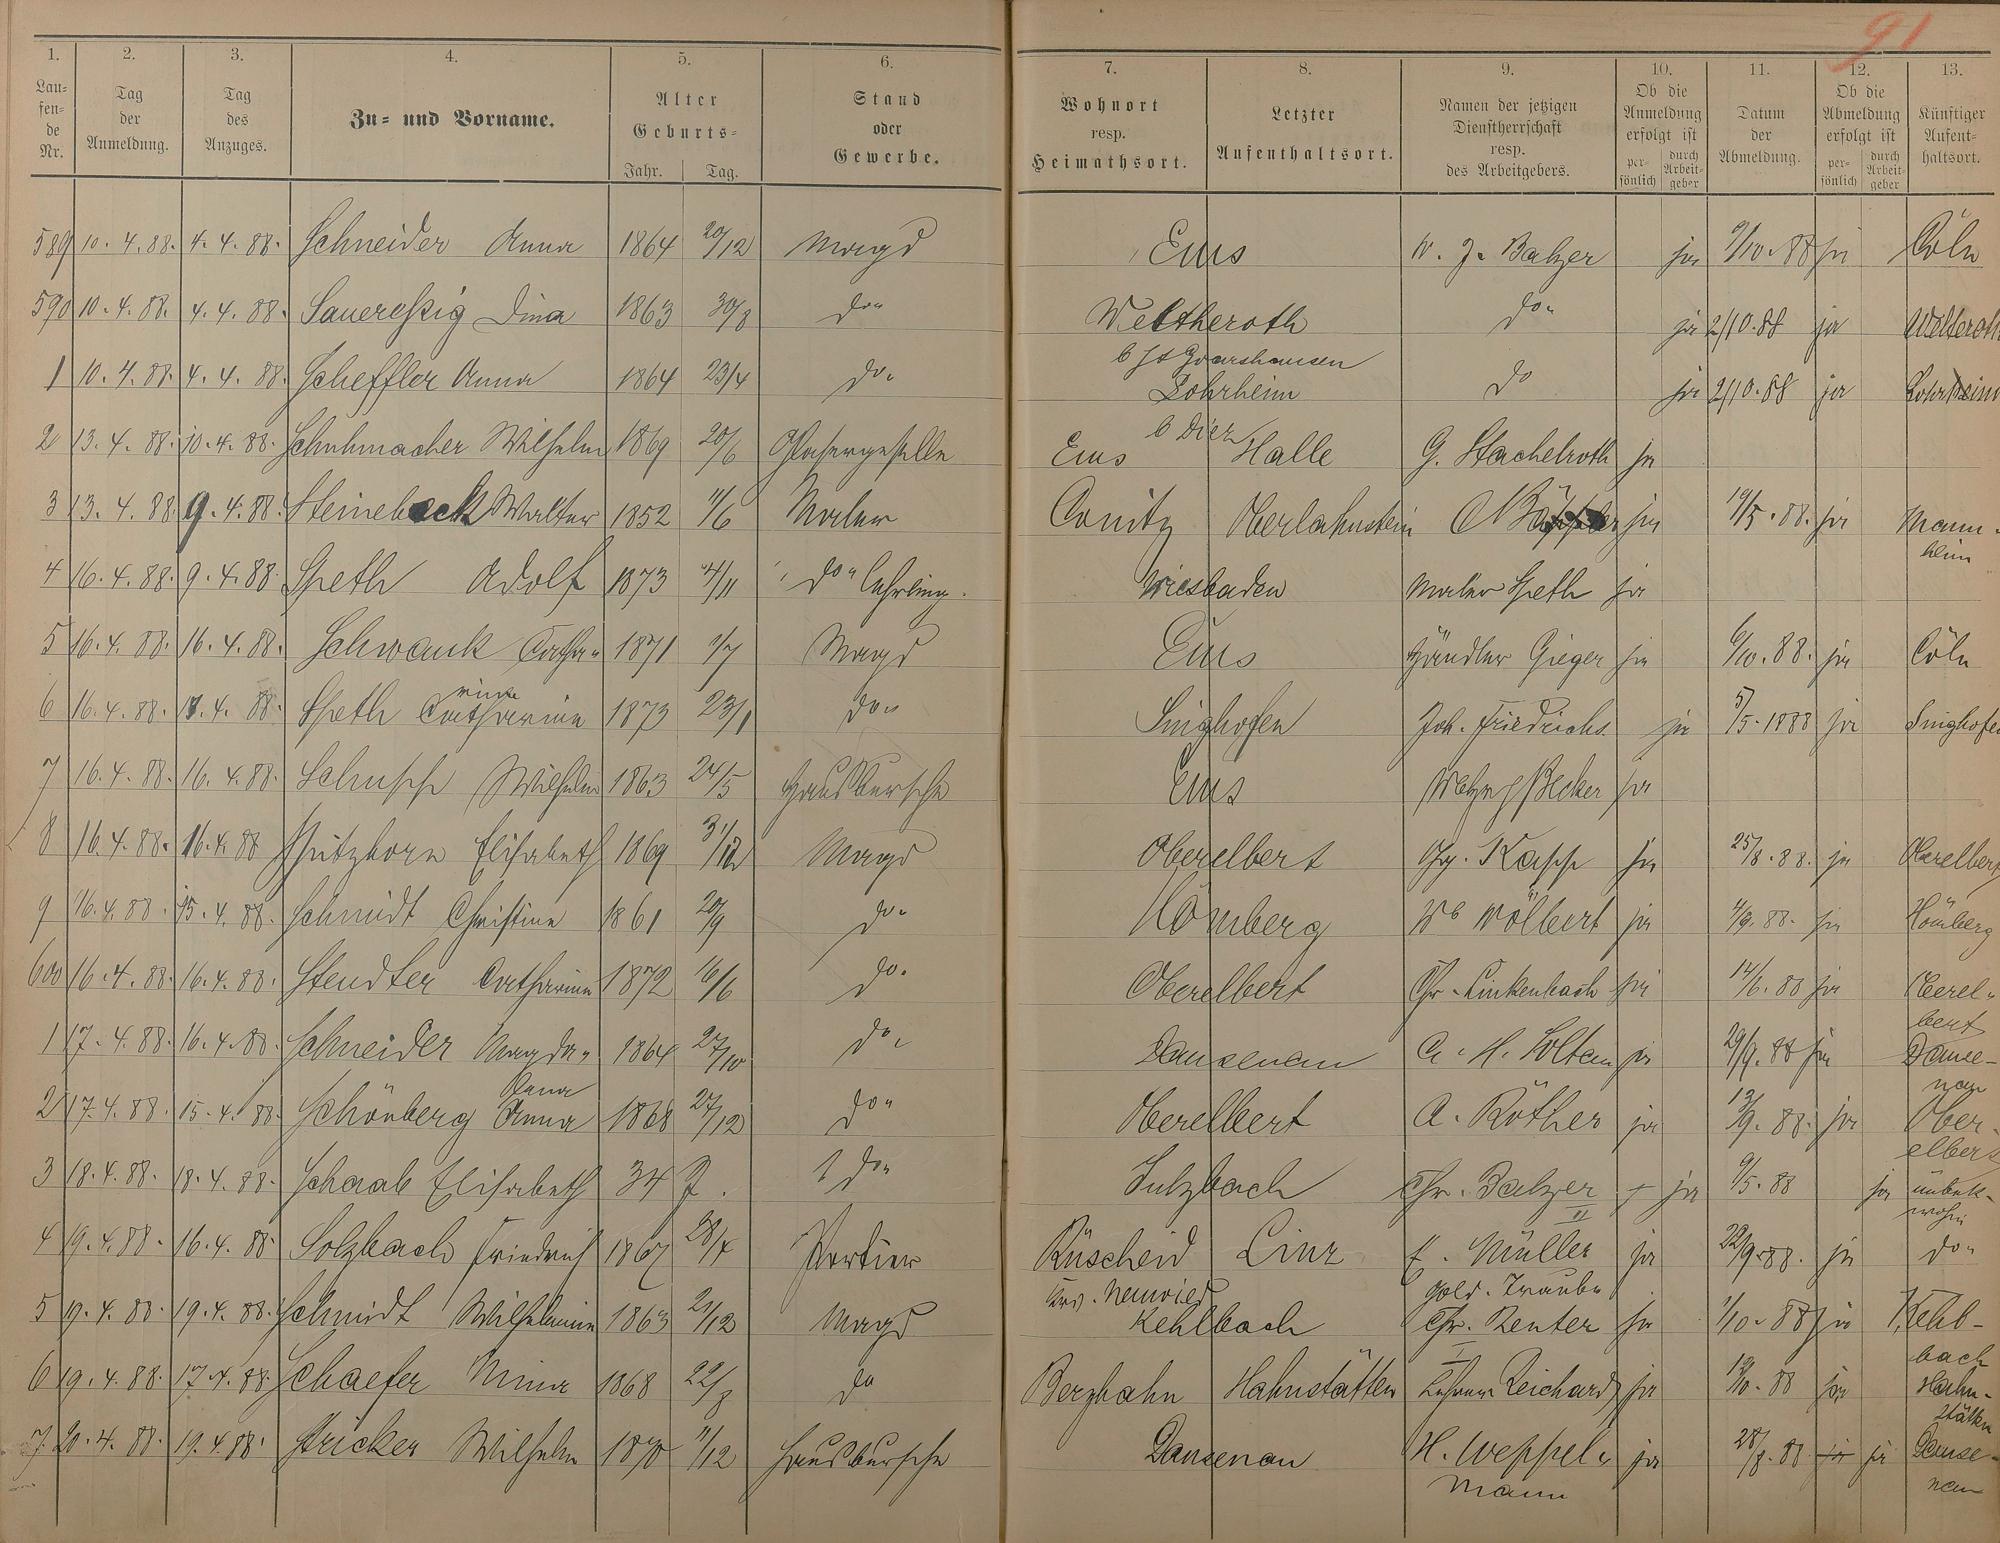 91
1. 2. 3. 4. 5. 6. 7. 8. 9. 10. 11. 12. 13.
Lau-fen-de Nr. Tag der Anmeldung. Tag des Anzuges. Zu- und Vorname. Alter Geburts- Jahr. Tag. Stand oder Gewerbe. Wohnort resp. Heimathsort. Letzter Aufenthaltsort. Namen der jetzigen Dienstherrschaft resp. des Arbeitgebers. Ob die Anmeldung erfolgt ist per-sönlich durch Arbeit-geber Datum der Abmeldung. Ob die Abmeldung erfolgt ist per-sönlich durch Arbeit-geber Künftiger Aufent-haltsort.
589 10. 4. 88. 4. 4. 88. Schneider Anna 1864 20/12 Magd Ems W. J. Balzer ja 9/10. 88 ja Cöln
590 10. 4. 88. 4. 4. 88. Sauereßig Dina 1863 30/8 do. Weltheroth do. ja 2/10. 88 ja Welteroth
b St Goarshausen
1 10. 4. 88. 4. 4. 88. Scheffler Anna 1864 23/4 do. Lohrheim do ja 2/10. 88 ja Lohrheim
b Diez
2 13. 4. 88. 10. 4. 88. Schuhmacher Wilhelm 1869 20/6 Glasergeselle Ems Halle G. Stachelroth ja
3 13. 4. 88. 9. 4. 88. Steineback Walter 1852 11/6 Maler Conitz Oberlahnstein ja 19/5. 88. ja Mann-
heim
4 16. 4. 88. 9. 4. 88 Speth Adolf 1873 4/11 do. Lehrling. Wiesbaden Maler Speth ja
5 16. 4. 88. 16. 4. 88. Schwank Catha- 1871 1/7 Magd Ems Händler Gieger ja 6/10. 88. ja Cöln
rina
6 16. 4. 88. 17. 4. 88. Speth Catharina 1873 23/1 do. Singhofen Joh. Friedrichs. ja 5/5. 1888 ja Singhofen
7 16. 4. 88. 16. 4. 88. Schupp Wilhelm 1863 24/5 Hausbursche Ems Metzg Becker ja
8 16. 4. 88. 16. 4. 88 Spitzhorn Elisabeth 1869 31/12 Magd Oberelbert Chr. Kapp ja 25/8. 88. ja Oberelbert
9 16. 4. 88. 15. 4. 88. Schmidt Christine 1861 20/9 do. Hömberg Wb Wölbert ja 4/9. 88. ja Hömberg
600 16. 4. 88. 16. 4. 88. Stendter Catharina 1872 16/6 do. Oberelbert Chr. Linkenbach ja 14/6. 88 ja Oberel-
bert
1 17. 4. 88. 16. 4. 88. Schneider Magda- 1864 27/10 do. Dausenau A. H. Soltau ja 29/9. 88 ja Dause-
lena nau
2 17. 4. 88. 15. 4. 88. Schönberg Anna 1868 27/12 do. Oberelbert A. Röther ja 13/9. 88. ja Ober-
elbert
3 18. 4. 88. 18. 4. 88. Schaab Elisabeth 34 J. do. Sulzbach Chr. Balzer ja 9/5. 88 ja unbek.
II wohin
4 19. 4. 88. 16. 4. 88. Solzbach Friedrich 1867 28/4 Portier Rüscheid Linz E. Müller ja 22/9. 88. ja do.
Krs. Neuwied gold. Traube
5 19. 4. 88. 19. 4. 88. Schmidt Wilhelmine 1863 21/12 Magd Kehlbach Chr. Reuter ja 1/10. 88 ja Kehl-
I bach
6 19. 4. 88. 17. 4. 88. Schaefer Mina 1868 22/8 do Berzhahn Hahnstätten Lehrer Reichard ja 12/10. 88 ja Hahn-
stätten
7. 20. 4. 88. 19. 4. 88. Stricker Wilhelm 1870 11/12 Hausbursche Dausenau H. Weppel- ja 28/8. 88 ja ja Dause-
mann nau